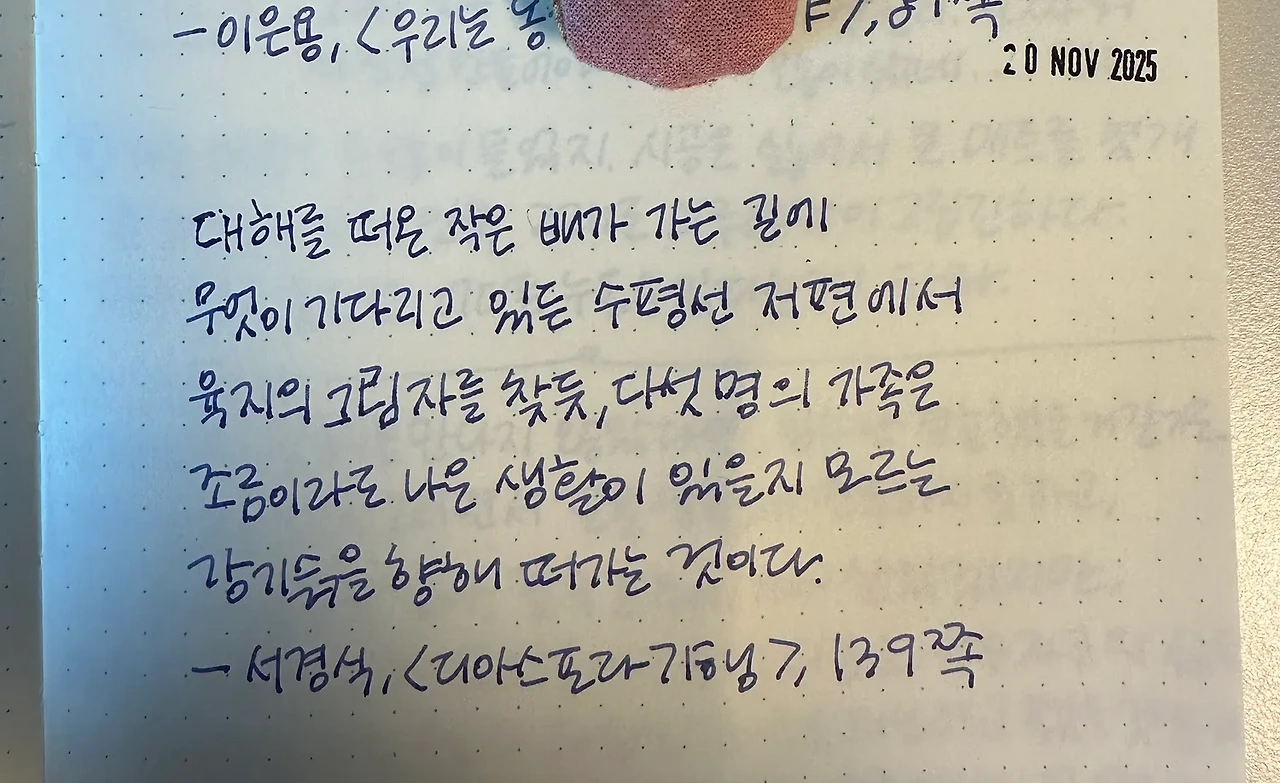 - 이은용, <우리는
20 NOV 2025
대해를 떠온 작은 배가 가는 길에
무엇이 기다리고 있든 수평선 저편에서
육지의 그림자를 찾듯, 다섯 명의 가족은
조금이라도 나은 생활이 있을지 모르는
강기슭을 향해 떠가는 것이다.
- 서경식, <디아스포라 기행>, 139쪽